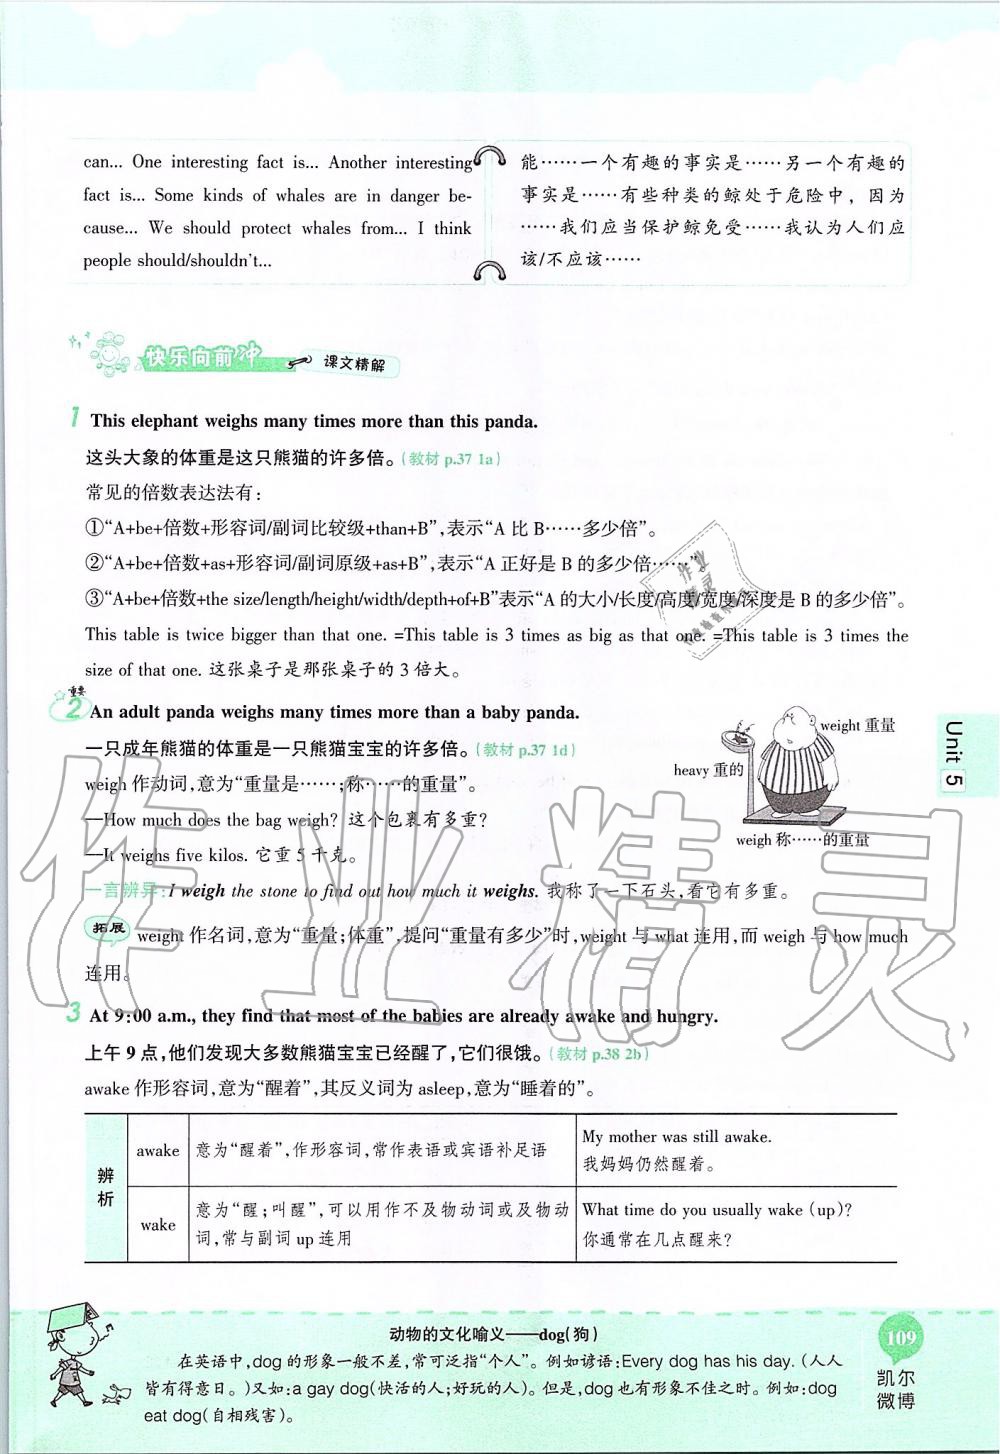 can... One interesting fact is... Another interesting
fact is... Some kinds of whales are in danger be-
cause... We should protect whales from... I think
people should/shouldn't...
能……一个有趣的事实是……另一个有趣的
事实是……有些种类的鲸处于危险中，因为
……我们应当保护鲸免受……我认为人们应
该/不应该……
快乐向前冲 课文精解
1 This elephant weighs many times more than this panda.
这头大象的体重是这只熊猫的许多倍。(教材 p.37 1a)
常见的倍数表达法有：
①“A+be+倍数+形容词/副词比较级+than+B”,表示“A 比 B……多少倍”。
②“A+be+倍数+as+形容词/副词原级+as+B”,表示“A 正好是 B 的多少倍……”。
③“A+be+倍数+the size/length/height/width/depth+of+B”表示“A 的大小/长度/高度/宽度/深度是 B 的多少倍”。
This table is twice bigger than that one. =This table is 3 times as big as that one. =This table is 3 times the
size of that one. 这张桌子是那张桌子的 3 倍大。
重要
2 An adult panda weighs many times more than a baby panda.
一只成年熊猫的体重是一只熊猫宝宝的许多倍。(教材 p.37 1d)
weigh 作动词,意为“重量是……;称……的重量”。
—How much does the bag weigh? 这个包裹有多重?
—It weighs five kilos. 它重 5 千克。
weight 重量
heavy 重的
weigh 称……的重量
一言辨异:I weigh the stone to find out how much it weighs. 我称了一下石头,看它有多重。
拓展 weight 作名词,意为“重量;体重”,提问“重量有多少”时,weight 与 what 连用,而 weigh 与 how much
连用。
3 At 9:00 a.m., they find that most of the babies are already awake and hungry.
上午 9 点,他们发现大多数熊猫宝宝已经醒了,它们很饿。(教材 p.38 2b)
awake 作形容词,意为“醒着”,其反义词为 asleep,意为“睡着的”。
辨析
awake 意为“醒着”,作形容词,常作表语或宾语补足语
My mother was still awake.
我妈妈仍然醒着。
wake 意为“醒;叫醒”,可以用作不及物动词或及物动
词,常与副词 up 连用
What time do you usually wake (up)?
你通常在几点醒来?
Unit 5
作业精灵
作业
精灵
动物的文化喻义——dog(狗)
在英语中,dog 的形象一般不差,常可泛指“个人”。例如谚语:Every dog has his day.(人人
皆有得意日。)又如:a gay dog(快活的人;好玩的人)。但是,dog 也有形象不佳之时。例如:dog
eat dog(自相残害)。
109
凯尔
微博